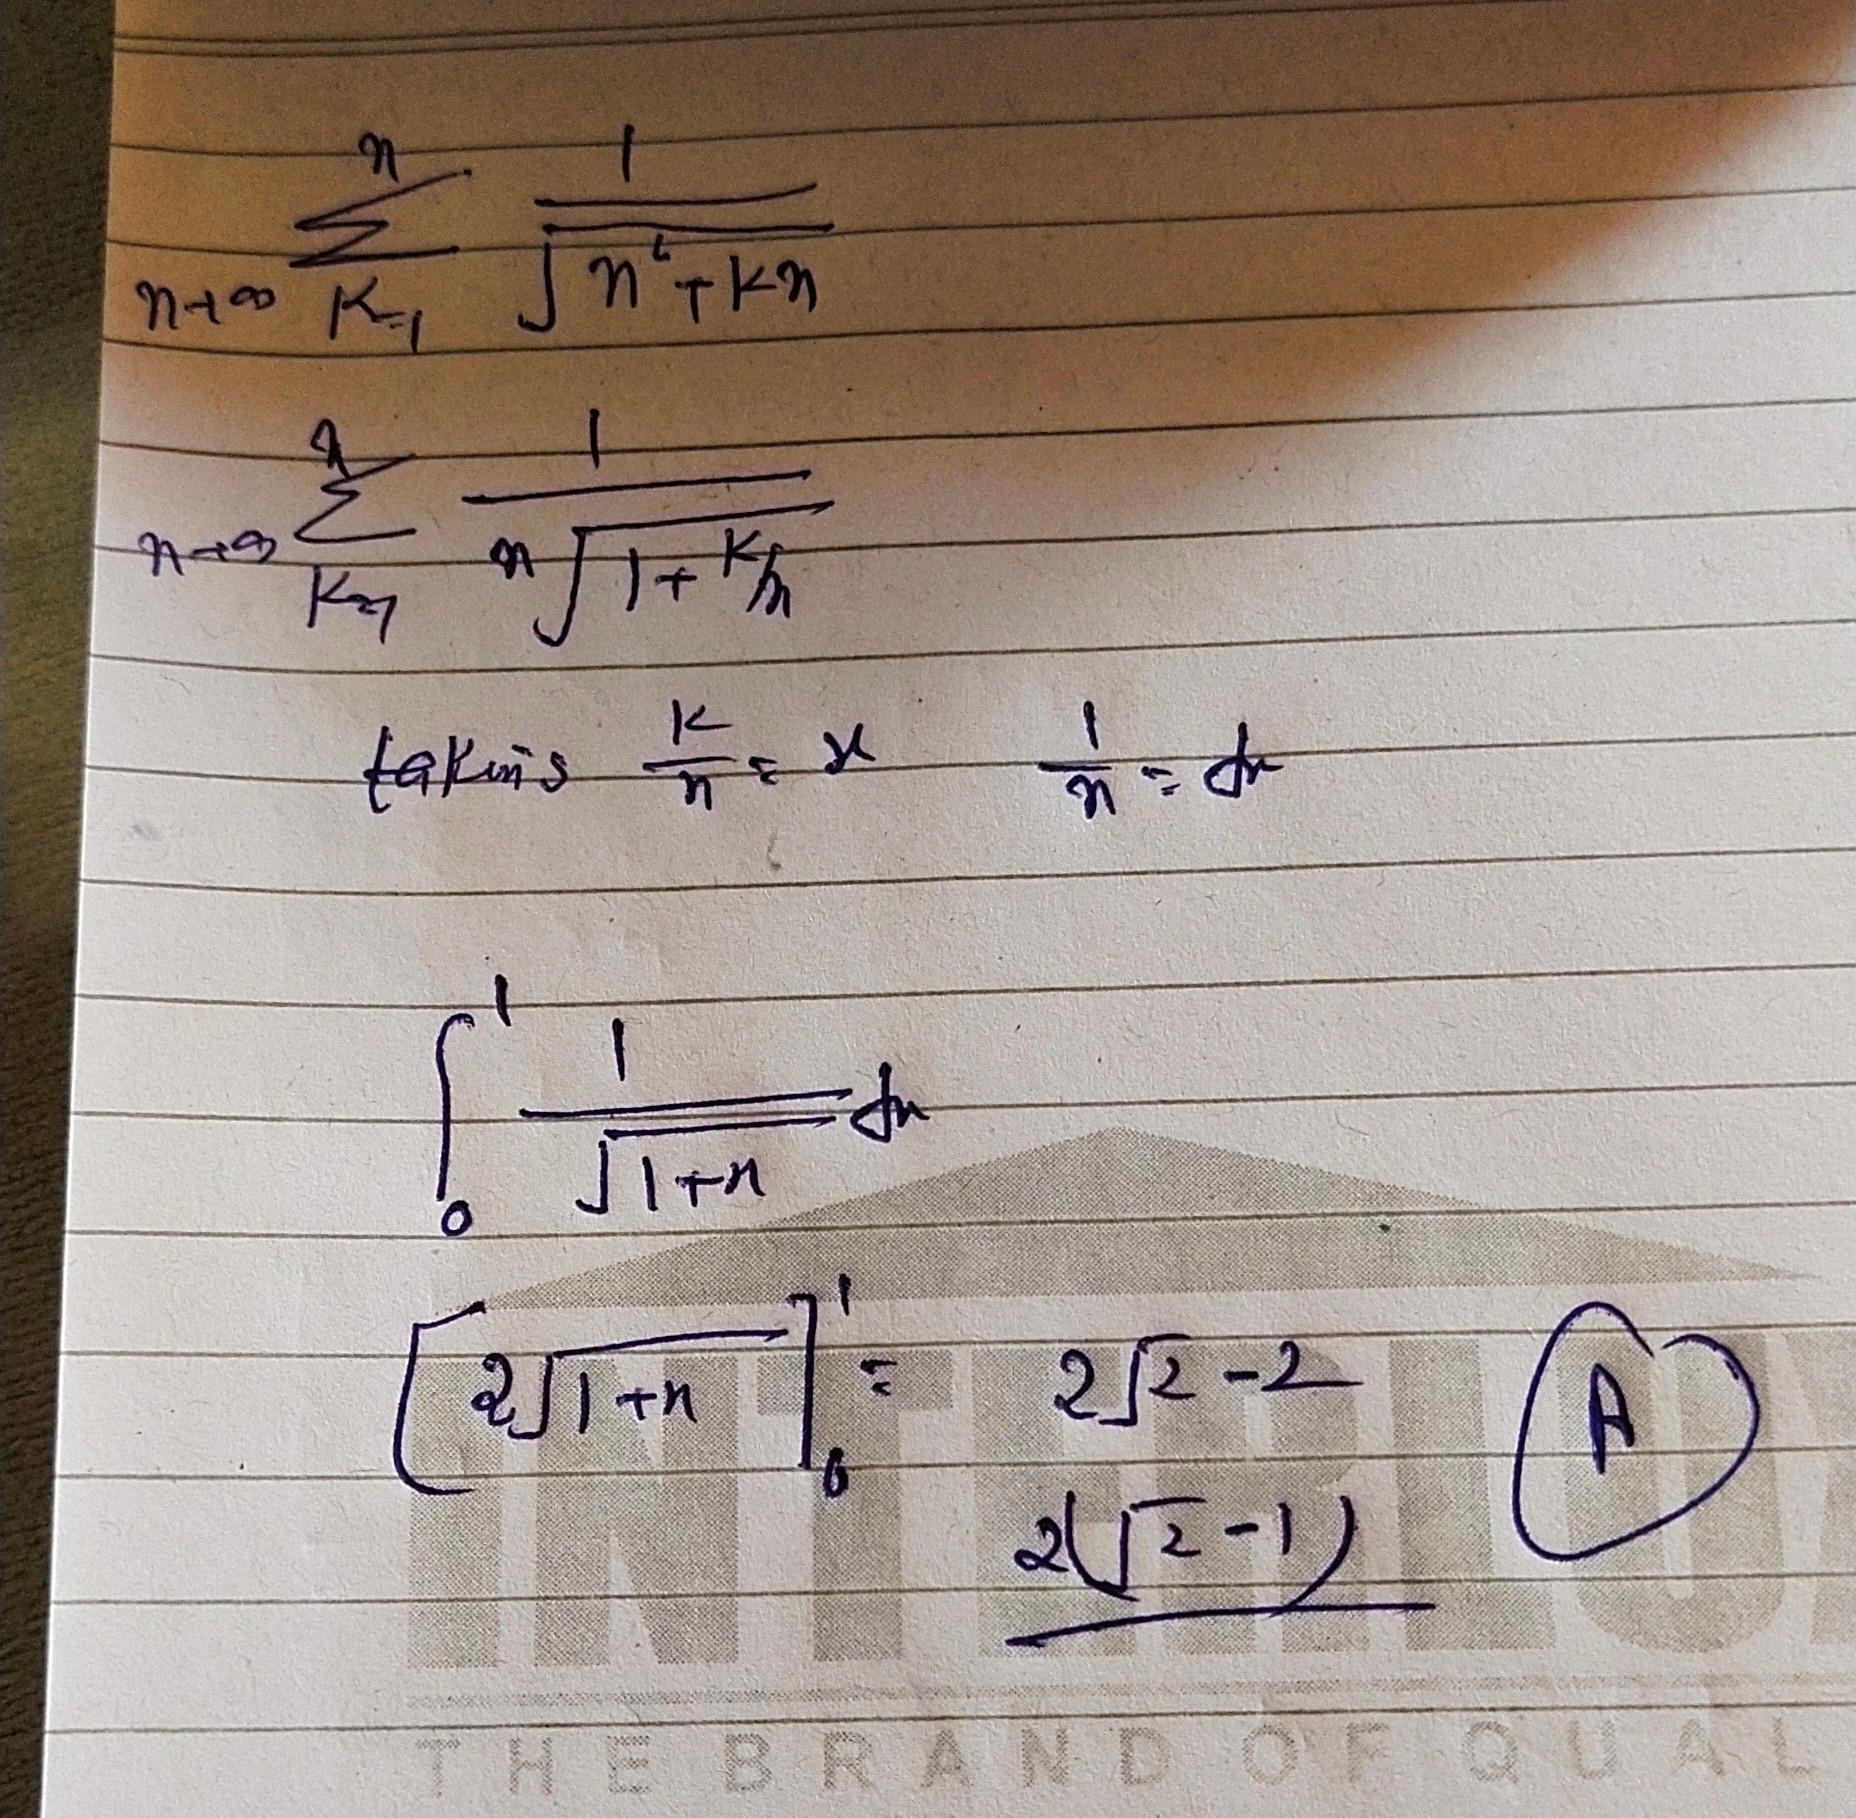 n
∑ 1/√(n²+kn)
n→∞ K=1
n
∑ 1/(n√(1+K/n))
n→∞ K=1
taking K/n = x 1/n = dx
∫₀¹ 1/√(1+x) dx
[2√(1+x)]₀¹ = 2√2-2 A
2(√2-1)
INTERLU
THE BRAND OF QUAL